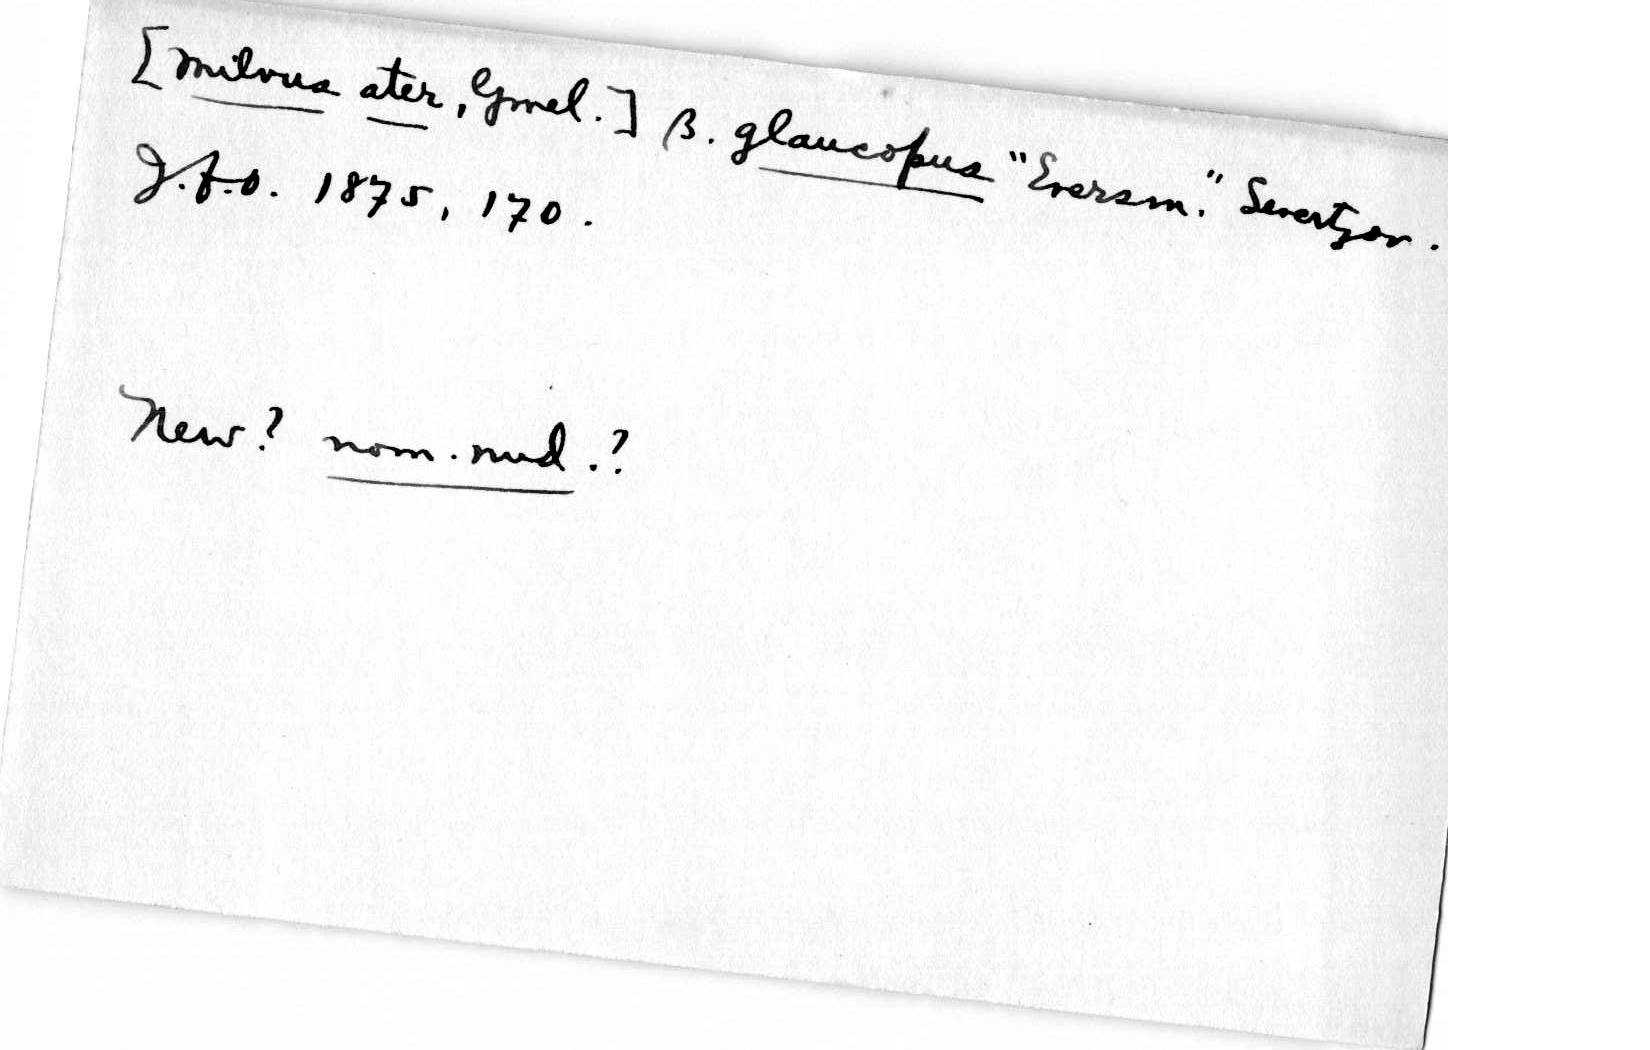 [Milvus ater, Gmel.] β. glaucopus "Eversm." Severtzov.
J.f.O. 1875, 170.
New? nom. nud.?